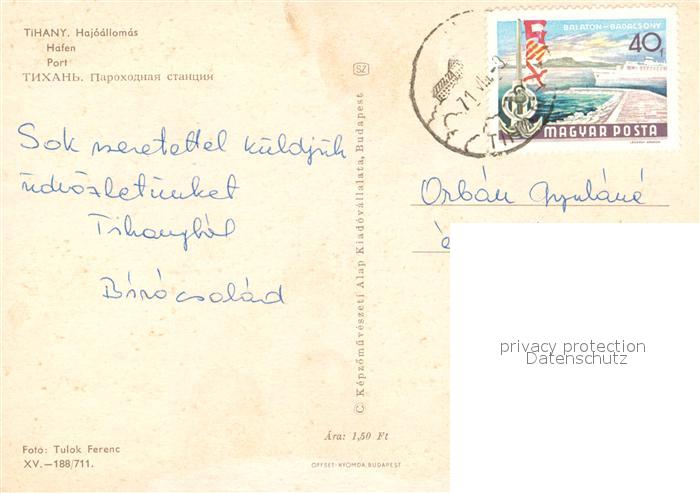 TiHANY. Hajóállomás
Hafen
Port
ТИХАНЬ. Пароходная станция
Sok szeretettel küldjük
üdvözletünket
Tihanyból
Bíró család
Fotó: Tulok Ferenc
XV.—188/711.
SZ
© Képzőművészeti Alap Kiadóvállalata, Budapest
Ára: 1,50 Ft
OFFSET-NYOMDA, BUDAPEST
BALATON-BADACSONY
40f
MAGYAR POSTA
71 VIII.
Orbán Gyuláné
é
privacy protection
Datenschutz